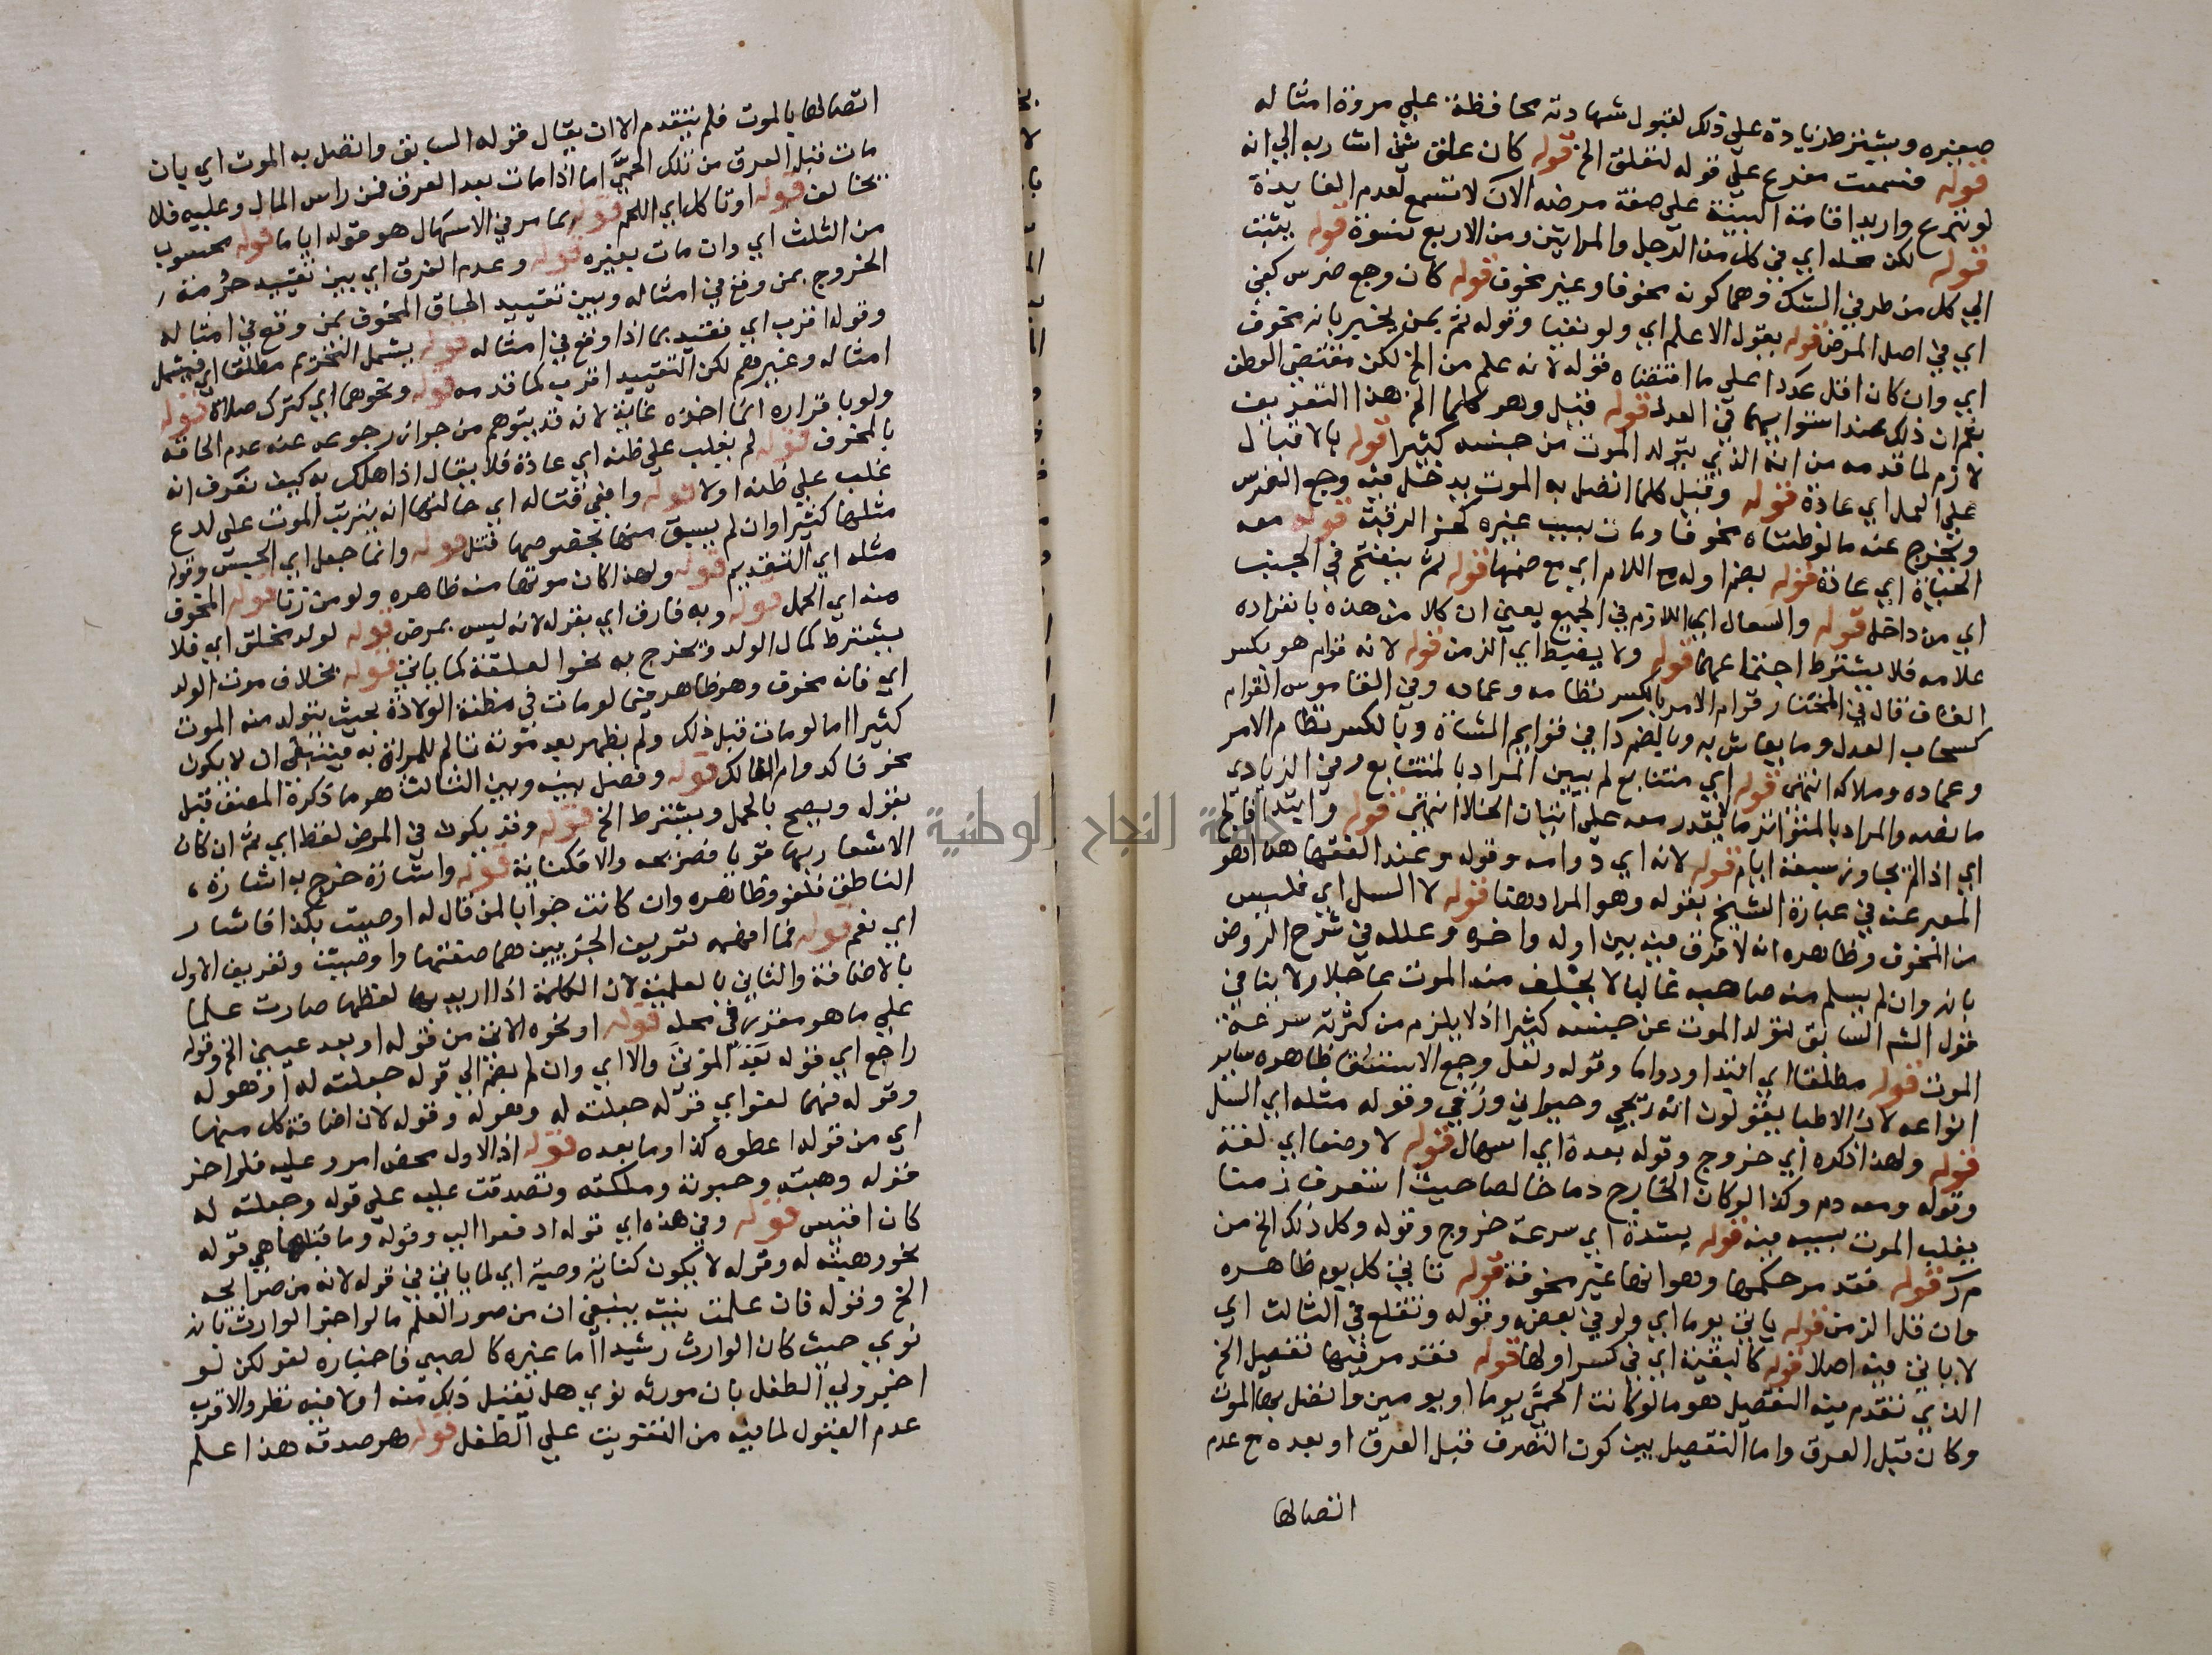 صغيره ويشترط زيادة على ذلك لقبول شهادته محافظة على مروة امثاله
قوله فسمعت مفرع على قوله لتعلق الخ قوله كان علق شي اشار به الى انه
لو تبرع واريد اقامة البينة على صفة مرضه الان لا تسمع لعدم الفايدة
قوله لكن محله اي في كل من الرجل والمراتين ومن الاربع نسوة قوله يثبت
الي كل من طرفي الشك وهما كونه مخوفا وغير مخوف قوله كان وجع ضرس كفى
اي في اصل المرض قوله بقول الاعلم اي ولو نفيا وقوله ثم يمن يخبر بانه مخوف
اي وان كان اقل عددا على ما اقتضاه قوله لانه علم من الخ لكن مقتضى
يعلم ان ذلك عند استوائهما في العدلة قوله قبل وهو كلما الخ هذا التعريف
لازم لما قدمه من انه الذي يتولد الموت من جنسه كثيرا قوله بالاقبال
على العمل اي عادة قوله وقيل كلما اتصل به الموت يدخل فيه وجع الضرس
ويخرج عنه ما لو ظنناه مخوفا ومات بسبب غيره كحز الرقبة قوله معه
الحياة اي عادة قوله بضم اوله مع اللام اي مع ضمها قوله ثم ينفتح في الجنب
اي من داخل قوله والسعال اي اللازم في الجميع يعني ان كلا من هذه بانفراده
علامة فلا يشترط اجتماعهما قوله ولا يضبط اي الزمن قوله لانه قوام هو بكسر
القاف قال في المختار قوام الامر بالكسر نظامه وعماده وفي القاموس القوام
كسحاب العدل وما يعاش به وبالضم داء في قوايم الشاة وبالكسر نظام الامر
وعماده وملاكه انتهى قوله اي متتابع لم يبين المراد بالمتتابع وفي الزيادي
ما نصه والمراد بالمتواتر ما لا يقدر معه على اتيان الخلا انتهى قوله وابتدا فالج
اي اذا لم يجاوز سبعة ايام قوله لانه اي دوامه وقوله وعند الفقها هذا هو
المعبر عنه في عبارة الشيخ بقوله وهو المراد هنا قوله لا السل اي فليس
من المخوف وظاهره انه لا فرق فيه بين اوله واخره وعلله في شرح الروض
بانه وان لم يسلم منه صاحبه غالبا لا يختلف منه الموت عاجلا ولا ينافي
قول الشم السابق لتولد الموت عن جنسه كثيرا اذ لا يلزم من كثرته سرعة
الموت قوله مطلقا اي ابتدا ودواما وقوله ولعل وجع الاستسقا ظاهره ساير
انواعه لان الاطبا يقولون انه ريحي وحيواني وزقي وقوله مثله اي السل
قوله ولهذا ذكره اي خروج وقوله بعده اي اسهال قوله لا وضعا اي لغة
وقوله ومعه دم وكذا لو كان الخارج دما خالصا حيث استغرق زمنا
يغلب الموت بسببه فيه قوله بشدة اي سرعة خروج وقوله وكل ذلك الخ من
م ر قوله فقد مر حكمها وهو انها غير مخوفة قوله تاتي كل يوم ظاهره
وان قل الزمن قوله ياتي يوما اي ولو في بعضه وقوله وتقلع في الثالث اي
لا ياتي فيه اصلا قوله كالبقية اي في كسر اولها قوله فقد مر فيها تفصيل الخ
الذي تقدم فيه التفصيل هو ما لو كانت الحمى يوما او يومين واتصل بها الموت
وكان قبل العرق واما التفصيل بين كون التصرف قبل العرق او بعده مع عدم
اتصالها
اتصالها بالموت فلم يتقدم الا ان يقال قوله السابق واتصل به الموت اي بان
مات قبل العرق من تلك الحمى اما اذا مات بعد العرق فمن راس المال وعليه فلا
يخالف قوله او تاكل اي اللحم قوله بما مر في الاسهال هو قوله اياما قوله محسوب
من الثلث اي وان مات بغيره قوله وعدم الفرق اي بين تقييد
الخروج بمن وقع في امثاله وبين تقييد الحاق المخوف بمن وقع في امثاله
وقوله اقرب اي فتقيد بما اذا وقع في امثاله قوله يشمل التحريم مطلقا اي فيشمل
امثاله وغيرهم لكن التقييد اقرب لما قدمه قوله ونحوهما اي كترك صلاة قوله
ولو باقراره انما اخذه غاية لانه قد يتوهم من جواز رجوعه عنه عدم الحاقه
بالمخوف قوله لم يغلب على ظنه اي عادة فلا يقال اذا هلك به كيف نعرف انه
غلب على ظنه اولا قوله وافتى قتاله اي حالتها انه يترتب الموت على لدغ
مثلها كثيرا وان لم يسبق منها بخصوصها قتل قوله وانما جعل اي الحبس وقوله
مثله اي التقديم قوله ولهذا كان موتها منه ظاهره ولو من زنا قوله المخوف
منه اي الحمل قوله وبه فارق اي بقوله لانه ليس بمرض قوله لولد مخلق اي فلا
يشترط كمال الولد ويخرج به نحو العلقة كما ياتي قوله بخلاف موت الولد
اي فانه مخوف وهو ظاهر فيما لو مات في مظنة الولادة بحيث يتولد منه الموت
كثيرا اما لو مات قبل ذلك ولم يظهر بعد موته تالم للمراة به فينبغي ان لا يكون
مخوفا كدوام الفالج قوله وفصل بينه وبين الثالث هو ما ذكره المصنف قبل
بقوله ويصح بالحمل ويشترط الخ قوله وقد يكون في المرض لفظ اي ثم ان كان
الاشعار بها قويا فصريحه والا فكناية قوله واشارة خرج به اشارة
الناطق فلغو وظاهره وان كانت جوابا لمن قال له اوصيت بكذا فاشار
اي نعم قوله فما اوهمه تعريف الجزيين هما صفتها واوصيت وتعريف الاول
بالاضافة والثاني بالعلمية لان الكلمة اذا اريد بها لفظها صارت علما
على ما هو مقرر في محله قوله او نحوه الاتي من قوله او بعد عيني الخ وقوله
راجع اي قوله بعد الموت والا اي وان لم يضم الى قوله جعلته له او هو له
وقوله فهما لغو اي قوله جعلته له وهو له وقوله لان اضافة كل منهما
اي من قوله اعطوه كذا وما بعده قوله اذ الاول محض امر وعليه فلو اخر
قوله وهبته وحبوته وملكته وتصدقت عليه على قوله وجعلته له
كان اقيس قوله وفي هذه اي قوله ادفعوا اليه وقوله وما قبلها هي قوله
نحو وهبته له وقوله لا يكون كناية وصية اي لما ياتي في قوله لانه من صرايحه
الخ وقوله فان علمت نيته ينبغي ان من صور العلم ما لو اخبر الوارث بانه
نوى حيث كان الوارث رشيدا اما غيره كالصبي فاخباره لغو لكن لو
اخبر ولي الطفل بان مورثه نوى هل يقبل ذلك منه او لا فيه نظر والاقرب
عدم القبول لما فيه من التفويت على الطفل قوله هو صدقة هذا علم
جامعة النجاح الوطنية